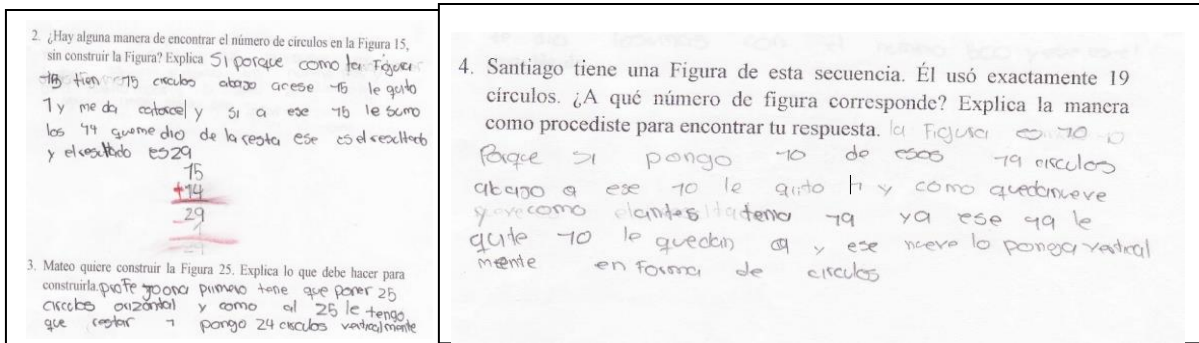 2. ¿Hay alguna manera de encontrar el número de círculos en la Figura 15,
sin construir la Figura? Explica SI porque como la Figura
15 tien 15 circulos abajo a rese 15 le quito
1 y me da catorce y si a ese 15 le sumo
los 14 que me dio de la resta ese es el resultado
y el resultado es 29
15
+14
29
3. Mateo quiere construir la Figura 25. Explica lo que debe hacer para
construirla. profe yoana primero tene que poner 25
circulos orizontal y como al 25 le tengo
que restar 1 pongo 24 circulos verticalmente
4. Santiago tiene una Figura de esta secuencia. Él usó exactamente 19
círculos. ¿A qué número de figura corresponde? Explica la manera
como procediste para encontrar tu respuesta. la Figura es 10
Porque si pongo 10 de esos 19 circulos
abajo a ese 10 le quito 1 y como quedan nueve
como el antes tenia 19 y a ese 19 le
quite 10 le quedan 9 y ese nueve lo ponga vertical
mente en Forma de circulos